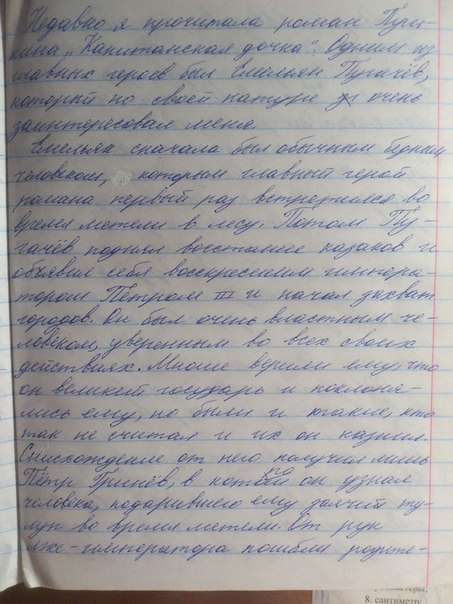 Недавно я прочитала роман Пуш-
кина „Капитанская дочка". Одним из
главных героев был Емельян Пугачёв,
который по своей натуре очень
заинтересовал меня.
Емельян сначала был обычным бедным
человеком, с которым главный герой
романа первый раз встретился во
время метели в лесу. Потом Пу-
гачёв поднял восстание казаков и
объявил себя воскресшим импера
тором Петром III и начал захват
городов. Он был очень властным че-
ловеком, уверенным во всех своих
действиях. Многие верили ему, что
он великий государь и поклоня-
лись ему, но были и такие, кто
так не считал и их он казнил.
Снисхождение от него получил лишь
Пётр Гринёв, в котором он узнал
человека, подарившего ему заячий ту-
луп во время метели. От рук
лже-императора погибли родите-
8. сантиметру